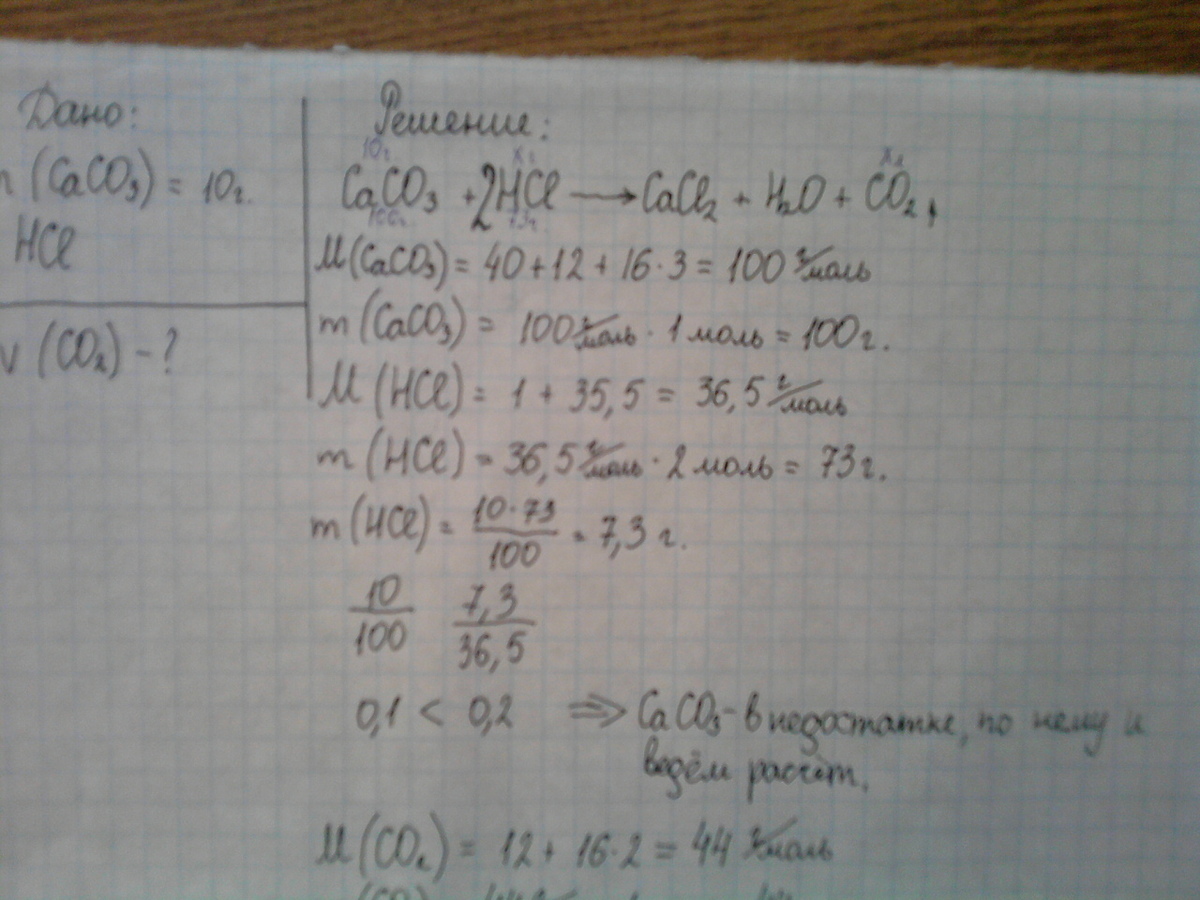 Дано:
m (CaCO₃) = 10г.
HCl
v (CO₂) - ?
Решение:
10г x₁ x₂
CaCO₃ + 2HCl → CaCl₂ + H₂O + CO₂,
100г 73г
M (CaCO₃) = 40 + 12 + 16 · 3 = 100 г/моль
m (CaCO₃) = 100 г/моль · 1 моль = 100 г.
M (HCl) = 1 + 35,5 = 36,5 г/моль
m (HCl) = 36,5 г/моль · 2 моль = 73 г.
m (HCl) = 10 · 73 / 100 = 7,3 г.
10/100 7,3/36,5
0,1 < 0,2 ⇒ CaCO₃ - в недостатке, по нему и
ведём расчёт.
M (CO₂) = 12 + 16 · 2 = 44 г/моль